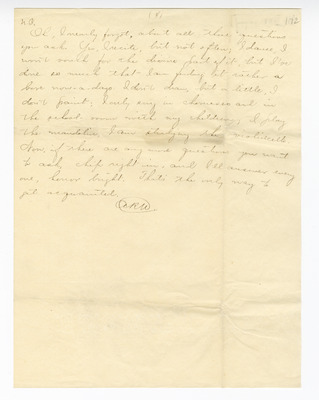 (8)
N.B.
Oh, I nearly forgot, about all those questions
you ask. Yes, I recite, but not often; I dance, I
won't vouch for the divine part of it, but I've
done so much that I am finding it rather a
bore now-a-days. I don't draw, but a little, I
don't paint; I only sing in choruses and in
the school room with my children; I play
the mandolin, I am studying the
Now, if there are any more questions you want
to ask, chip right in, and I'll answer every
one, honor bright. That's the only way to
get acquainted.